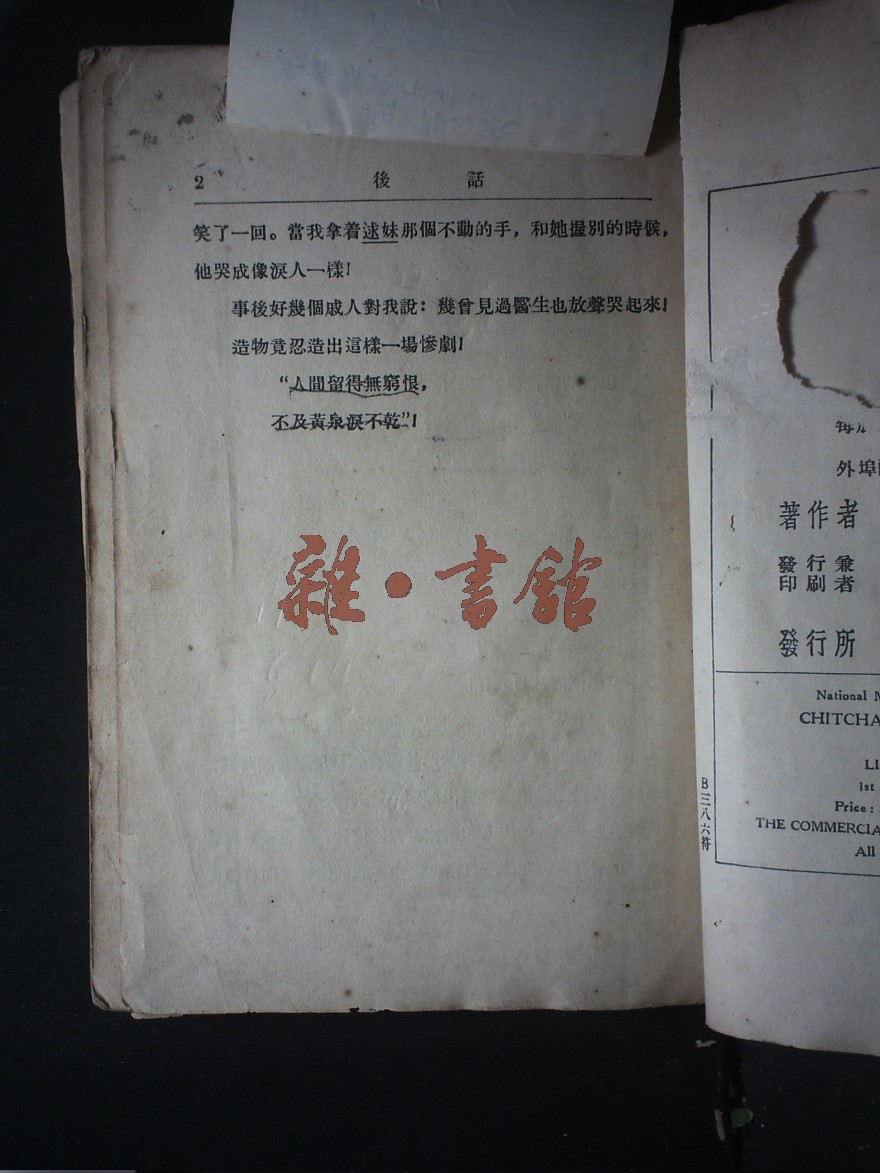 2
後 話
笑了一回。當我拿着逑妹那個不動的手，和她握別的時候，
他哭成像淚人一樣！
事後好幾個戚人對我說：幾曾見過醫生也放聲哭起來！
造物竟忍造出這樣一場慘劇！
“人間留得無窮恨，
不及黃泉淚不乾”！
雜·書館
外埠
著作者
發行兼
印刷者
發行所
National
CHITCHA
1st
Price:
THE COMMERCIA
All
B三八六符